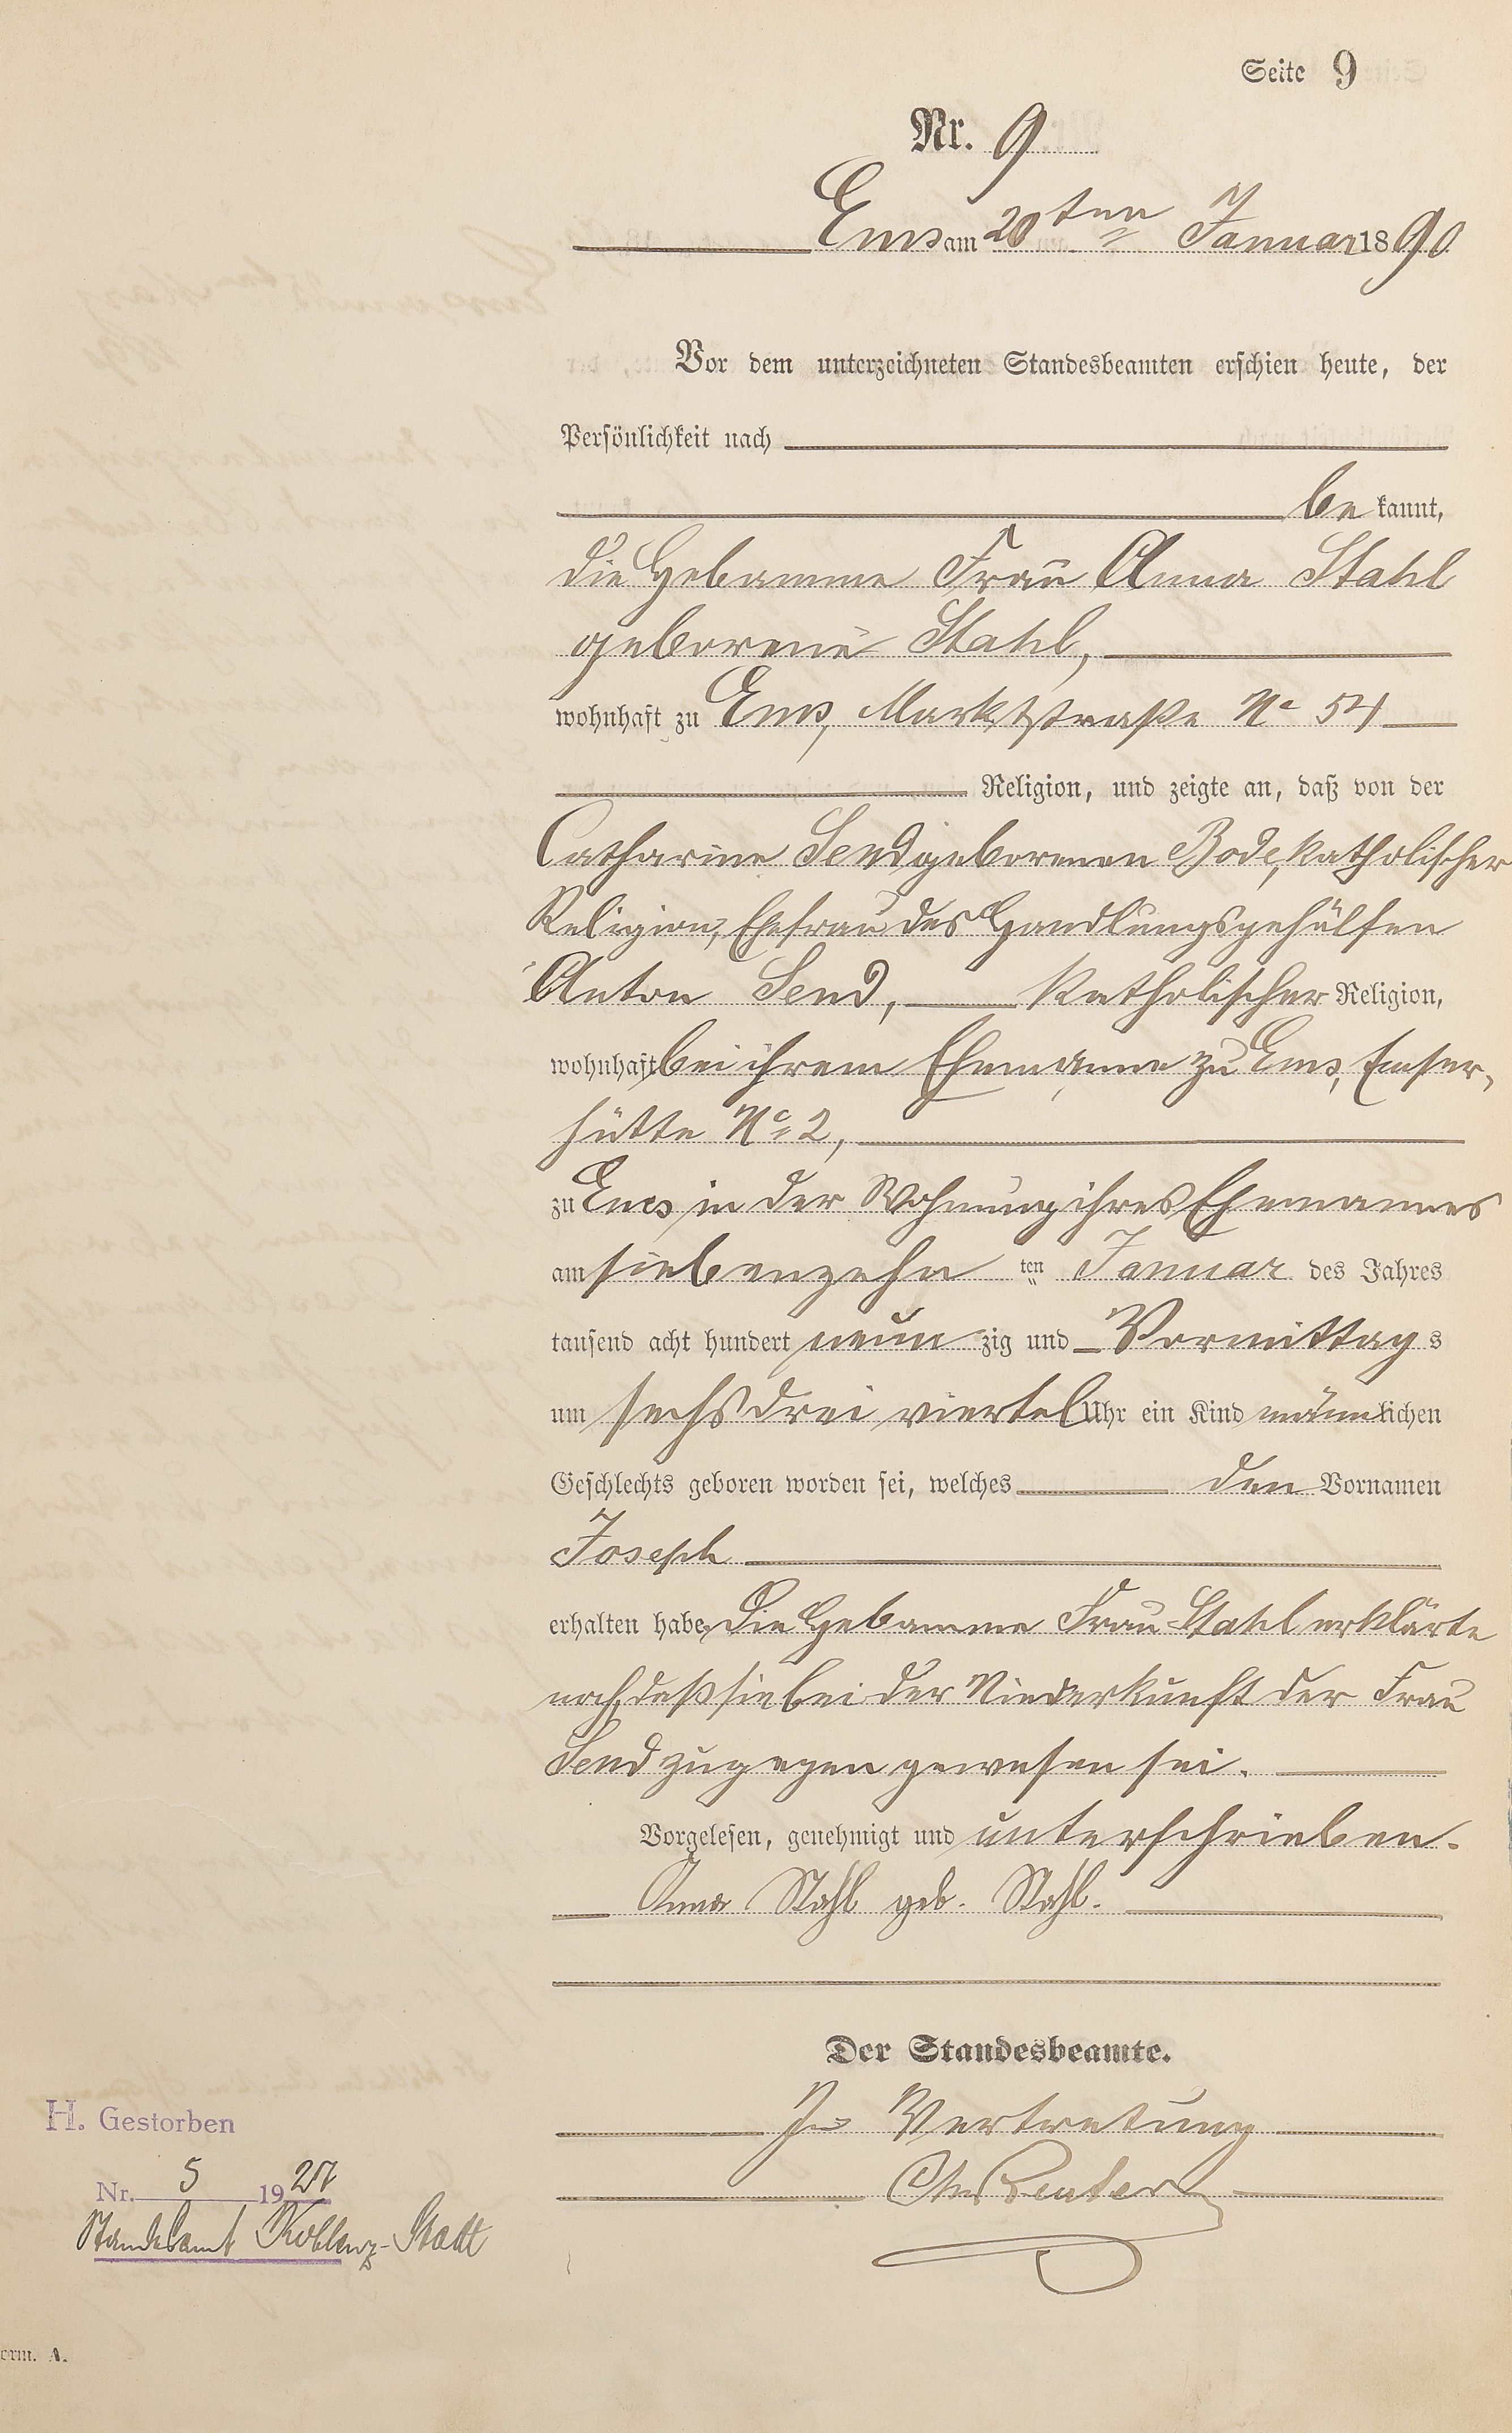 Seite 9
Nr. 9
Ems am 20ten Januar 1890
Vor dem unterzeichneten Standesbeamten erschien heute, der
Persönlichkeit nach
be kannt,
die Hebamme Frau Anna Stahl
geborene Stahl,
wohnhaft zu Ems, Marktstraße No 54
Religion, und zeigte an, daß von der
Catharine Send geborenen Bode, katholischer
Religion, Ehefrau des Handlungsgehülfen
Anton Send, katholischer Religion,
wohnhaft bei ihrem Ehemanne zu Ems, Emser-
hütte No 2,
zu Ems in der Wohnung ihres Ehemannes
am siebenzehn ten Januar des Jahres
tausend acht hundert neun zig und Vormittag s
um sechs drei viertel Uhr ein Kind männlichen
Geschlechts geboren worden sei, welches den Vornamen
Joseph
erhalten habe. Die Hebamme Frau Stahl erklärte
noch, daß sie bei der Niederkunft der Frau
Send zugegen gewesen sei.
Vorgelesen, genehmigt und unterschrieben.
Anna Stahl geb. Stahl.
Der Standesbeamte.
In Vertretung
H. Gestorben
Nr. 5 1927
Standesamt Koblenz-Stadt
orm. A.